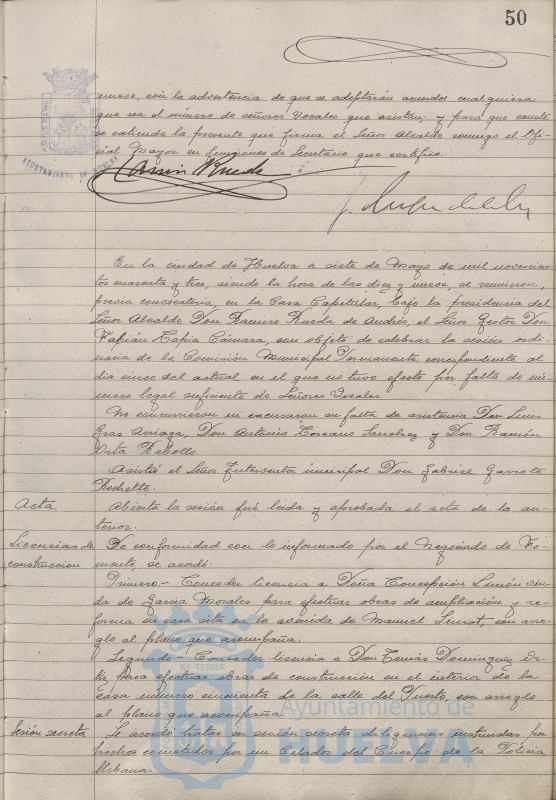 50
nueve, con la advertencia de que se adoptarán acuerdos cualquiera
que sea el número de señores Vocales que asistan; y para que conste
se extiende la presente que firma el Señor Alcalde conmigo el Ofi-
cial Mayor en funciones de Secretario que certifico.
AYUNTAMIENTO DE HUELVA
Ramiro Rueda
En la ciudad de Huelva a siete de Mayo de mil novecien-
tos cuarenta y tres, siendo la hora de las diez y nueve, se reunieron,
previa convocatoria, en la Casa Capitular, bajo la presidencia del
Señor Alcalde Don Ramiro Rueda de Andrés, el Señor Gestor Don
Fabián Tapia Cámara, con objeto de celebrar la sesión ordi-
naria de la Comisión Municipal Permanente correspondiente al
día cinco del actual, en el que no tuvo efecto por falta de nú-
mero legal suficiente de Señores Vocales.
No concurrieron ni excusaron su falta de asistencia Don Luis
Gras Arriaga, Don Antonio Toscano Sanchez y Don Ramón
Orta Rebollo.
Asistió el Señor Interventor municipal Don Gabriel Garrote
Rochette.
Acta. Abierta la sesión fué leída y aprobada el acta de la an-
terior.
Licencias de De conformidad con lo informado por el Negociado de Fo-
construccion mento, se acordó:
Primero - Conceder licencia a Doña Concepción Limón viu-
da de García Morales, para efectuar obras de ampliación y re-
forma en casa sita en la avenida de Manuel Siurot, con arre-
glo al plano que acompaña.
Segundo - Conceder licencia a Don Tomás Dominguez
para efectuar obras de construcción en el interior de la
casa número cincuenta de la calle del Puerto con arreglo
al plano que acompaña.
Sesión secreta Se acordó tratar en sesión secreta diligencias instruidas por
hechos cometidos por un Celador del Cuerpo de la Policía
Urbana.
Ayuntamiento de
HUELVA